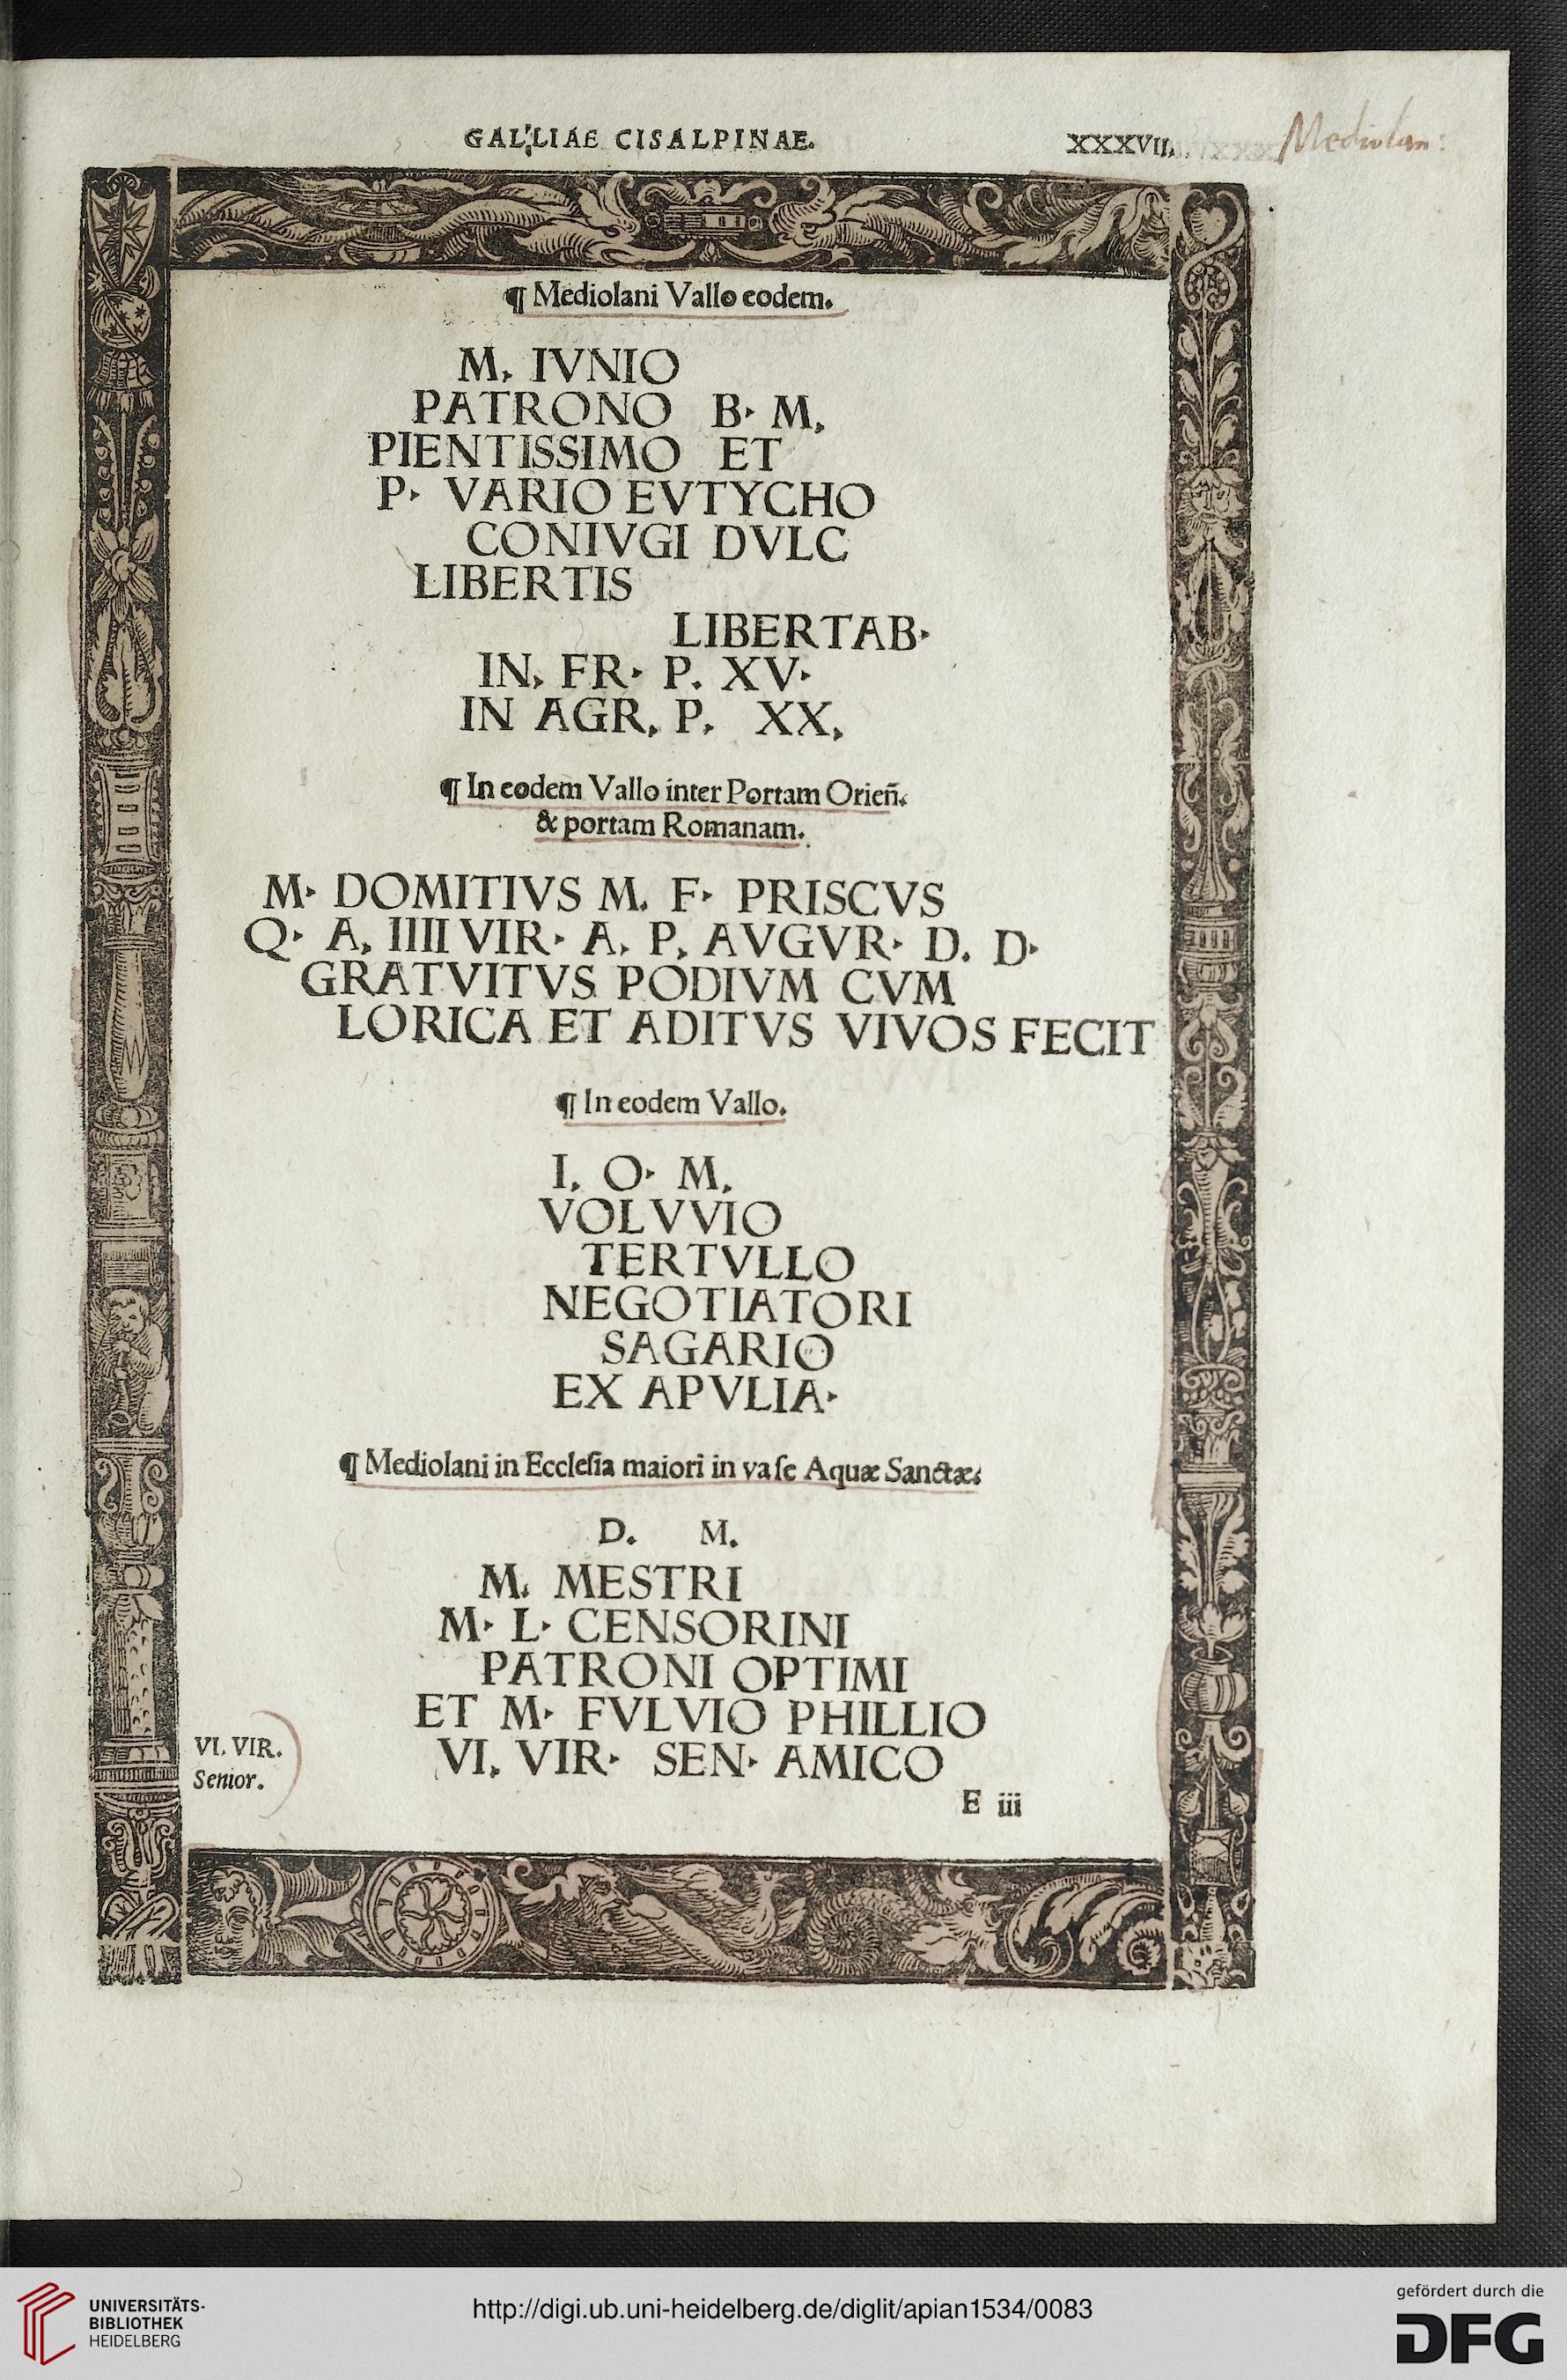 GALLIAE CISALPINAE.
XXXVII.
Mediolan:
¶ Mediolani Vallo eodem.
M. IVNIO
PATRONO B. M.
PIENTISSIMO ET
P. VARIO EVTYCHO
CONIVGI DVLC
LIBERTIS
LIBERTAB.
IN. FR. P. XV.
IN AGR. P. XX.
¶ In eodem Vallo inter Portam Orieñ.
& portam Romanam.
M. DOMITIVS M. F. PRISCVS
Q. A. IIII VIR. A. P. AVGVR. D. D.
GRATVITVS PODIVM CVM
LORICA ET ADITVS VIVOS FECIT
¶ In eodem Vallo.
I. O. M.
VOLVVIO
TERTVLLO
NEGOTIATORI
SAGARIO
EX APVLIA.
¶ Mediolani in Eccleſia maiori in vaſe Aquæ Sanctæ.
D. M.
M. MESTRI
M. L. CENSORINI
PATRONI OPTIMI
ET M. FVLVIO PHILLIO
VI. VIR. SEN. AMICO
VI. VIR.
Senior.
E iii
UNIVERSITÄTS-
BIBLIOTHEK
HEIDELBERG
http://digi.ub.uni-heidelberg.de/diglit/apian1534/0083
gefördert durch die
DFG